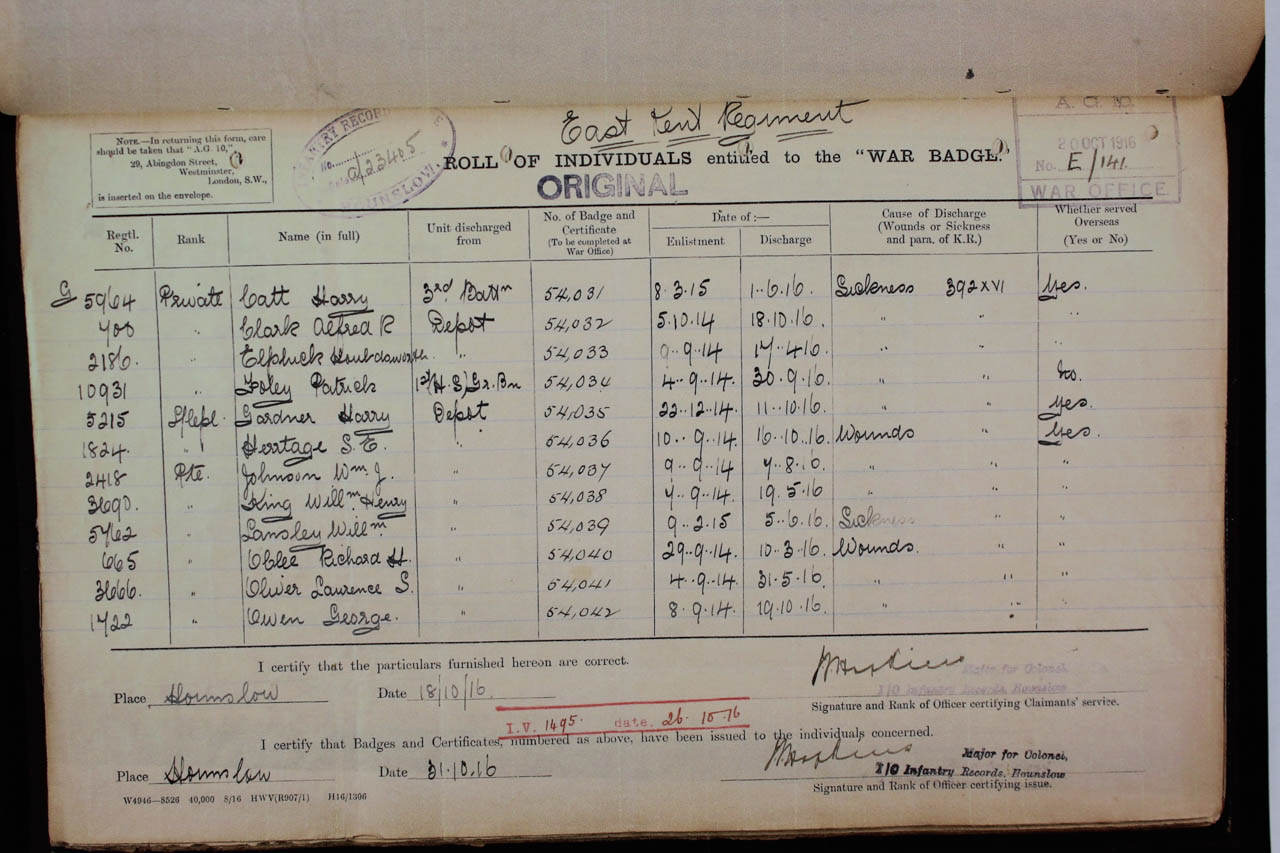 East Kent Regiment
NOTE.—In returning this form, care
should be taken that "A.G. 10,"
29, Abingdon Street,
Westminster,
London, S.W.,
is inserted on the envelope.
INFANTRY RECORD
No.
a/23405
HOUNSLOW.
A. G. 10.
20 OCT 1916
No. E/141.
WAR OFFICE
ROLL OF INDIVIDUALS entitled to the "WAR BADGE."
ORIGINAL
Regtl. No. Rank Name (in full) Unit discharged from No. of Badge and Certificate (To be completed at War Office) Date of :— Enlistment Discharge Cause of Discharge (Wounds or Sickness and para. of K.R.) Whether served Overseas (Yes or No)
G 5964 Private Catt Harry 3rd Battn 54,031 8.3.15 1.6.16. Sickness 392 XVI Yes.
700 " Clark Alfred R Depot 54,032 5.10.14 18.10.16. " " "
2186. " Elphick " 54,033 9.9.14 17.4.16. " " "
10931 " Foley Patrick 1st (H.S) Gr. Bn 54,034 4.9.14. 30.9.16. " " No.
5215 Gardner Harry Depot 54,035 22.12.14 11.10.16. " " Yes.
1824. " Herrtage S. E. " 54,036 10.9.14. 16.10.16. Wounds " Yes.
2418 Pte. Johnson Wm. J. " 54,037 9.9.14 7.8.16. " " "
3690. " King Willm. Henry " 54,038 7.9.14. 19.5.16 " " "
5762 " Lansley Willm. " 54,039 9.2.15 5.6.16. Sickness " "
665 " Oblee Richard H. " 54,040 29.9.14. 10.3.16. Wounds. " "
3666. " Oliver Laurence S. " 54,041 4.9.14. 31.5.16. " " "
1722 " Owen George. " 54,042 8.9.14. 19.10.16. " " "
I certify that the particulars furnished hereon are correct.
Place Hounslow Date 18/10/16.
Major for Colonel,
I/O Infantry Records, Hounslow
Signature and Rank of Officer certifying Claimants' service.
I.V. 1495. date. 26.10.16
I certify that Badges and Certificates, numbered as above, have been issued to the individuals concerned.
Place Hounslow Date 31.10.16
Major for Colonel,
I/O Infantry Records, Hounslow
Signature and Rank of Officer certifying issue.
W4946—8526 40,000 8/16 HWV(R907/1) H16/1306